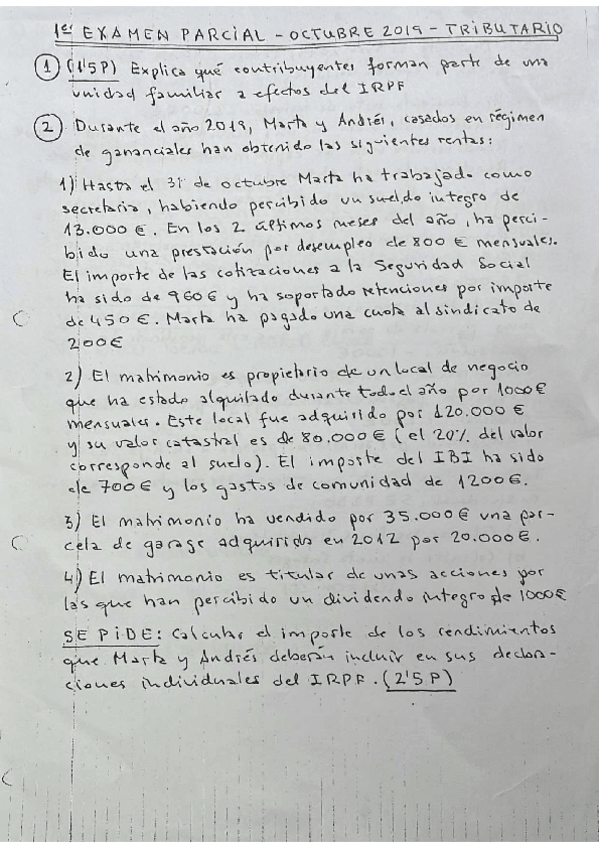 1er EXAMEN PARCIAL - OCTUBRE 2019 - TRIBUTARIO
1 (1'5 P) Explica qué contribuyentes forman parte de una
unidad familiar a efectos del IRPF
2 Durante el año 2019, Marta y Andrés, casados en régimen
de gananciales han obtenido las siguientes rentas:
1) Hasta el 31 de octubre Marta ha trabajado como
secretaria, habiendo percibido un sueldo integro de
13.000 €. En los 2 últimos meses del año, ha perci-
bido una prestación por desempleo de 800 € mensuales.
El importe de las cotizaciones a la Seguridad Social
ha sido de 960 € y ha soportado retenciones por importe
de 450 €. Marta ha pagado una cuota al sindicato de
200 €
2) El matrimonio es propietario de un local de negocio
que ha estado alquilado durante todo el año por 1000 €
mensuales. Este local fue adquirido por 120.000 €
y su valor catastral es de 80.000 € (el 20% del valor
corresponde al suelo). El importe del IBI ha sido
de 700 € y los gastos de comunidad de 1200 €.
3) El matrimonio ha vendido por 35.000 € una par-
cela de garage adquirida en 2012 por 20.000 €.
4) El matrimonio es titular de unas acciones por
las que han percibido un dividendo integro de 1000 €
SE PIDE: Calcular el importe de los rendimientos
que Marta y Andrés deberán incluir en sus declara-
ciones individuales del IRPF. (2'5 P)